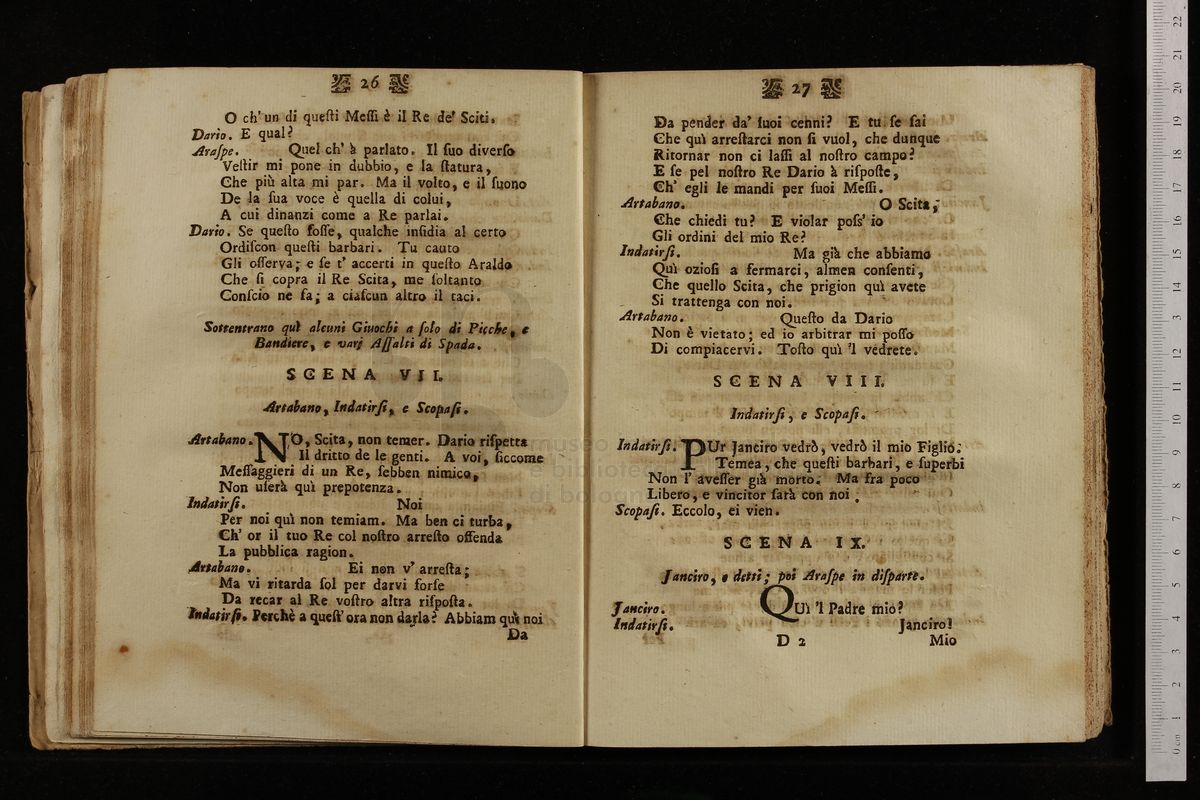 26
O ch' un di queſti Meſſi è il Re de' Sciti.
Dario. E qual?
Araſpe. Quel ch' à parlato. Il ſuo diverſo
Veſtir mi pone in dubbio, e la ſtatura,
Che più alta mi par. Ma il volto, e il ſuono
De la ſua voce è quella di colui,
A cui dinanzi come a Re parlai.
Dario. Se queſto foſſe, qualche inſidia al certo
Ordiſcon queſti barbari. Tu cauto
Gli oſſerva; e ſe t' accerti in queſto Araldo
Che ſi copra il Re Scita, me ſoltanto
Conſcio ne fa; a ciaſcun altro il taci.
Sottentrano quì alcuni Giuochi a ſolo di Picche, e
Bandiere, e varj Aſſalti di Spada.
SCENA VII.
Artabano, Indatirſi, e Scopaſi.
Artabano. NO, Scita, non temer. Dario riſpetta
Il dritto de le genti. A voi, ſiccome
Meſſaggieri di un Re, ſebben nimico,
Non uſerà quì prepotenza.
Indatirſi. Noi
Per noi quì non temiam. Ma ben ci turba,
Ch' or il tuo Re col noſtro arreſto offenda
La pubblica ragion.
Artabano. Ei non v' arreſta;
Ma vi ritarda ſol per darvi forſe
Da recar al Re voſtro altra riſpoſta.
Indatirſi. Perchè a queſt' ora non darla? Abbiam quì noi
Da
27
Da pender da' ſuoi cenni? E tu ſe ſai
Che quì arreſtarci non ſi vuol, che dunque
Ritornar non ci laſſi al noſtro campo?
E ſe pel noſtro Re Dario à riſpoſte,
Ch' egli le mandi per ſuoi Meſſi.
Artabano. O Scita,
Che chiedi tu? E violar poſſ' io
Gli ordini del mio Re?
Indatirſi. Ma già che abbiamo
Quì ozioſi a fermarci, almen conſenti,
Che quello Scita, che prigion quì avete
Si trattenga con noi.
Artabano. Queſto da Dario
Non è vietato; ed io arbitrar mi poſſo
Di compiacervi. Toſto quì 'l vedrete.
SCENA VIII.
Indatirſi, e Scopaſi.
Indatirſi. PUr Janciro vedrò, vedrò il mio Figlio.
Temea, che queſti barbari, e ſuperbi
Non l' aveſſer già morto. Ma fra poco
Libero, e vincitor ſarà con noi.
Scopaſi. Eccolo, ei vien.
SCENA IX.
Janciro, e detti; poi Araſpe in diſparte.
Janciro. QUì 'l Padre mio?
Indatirſi. Janciro!
D 2 Mio
museo
biblioteca
di bologna